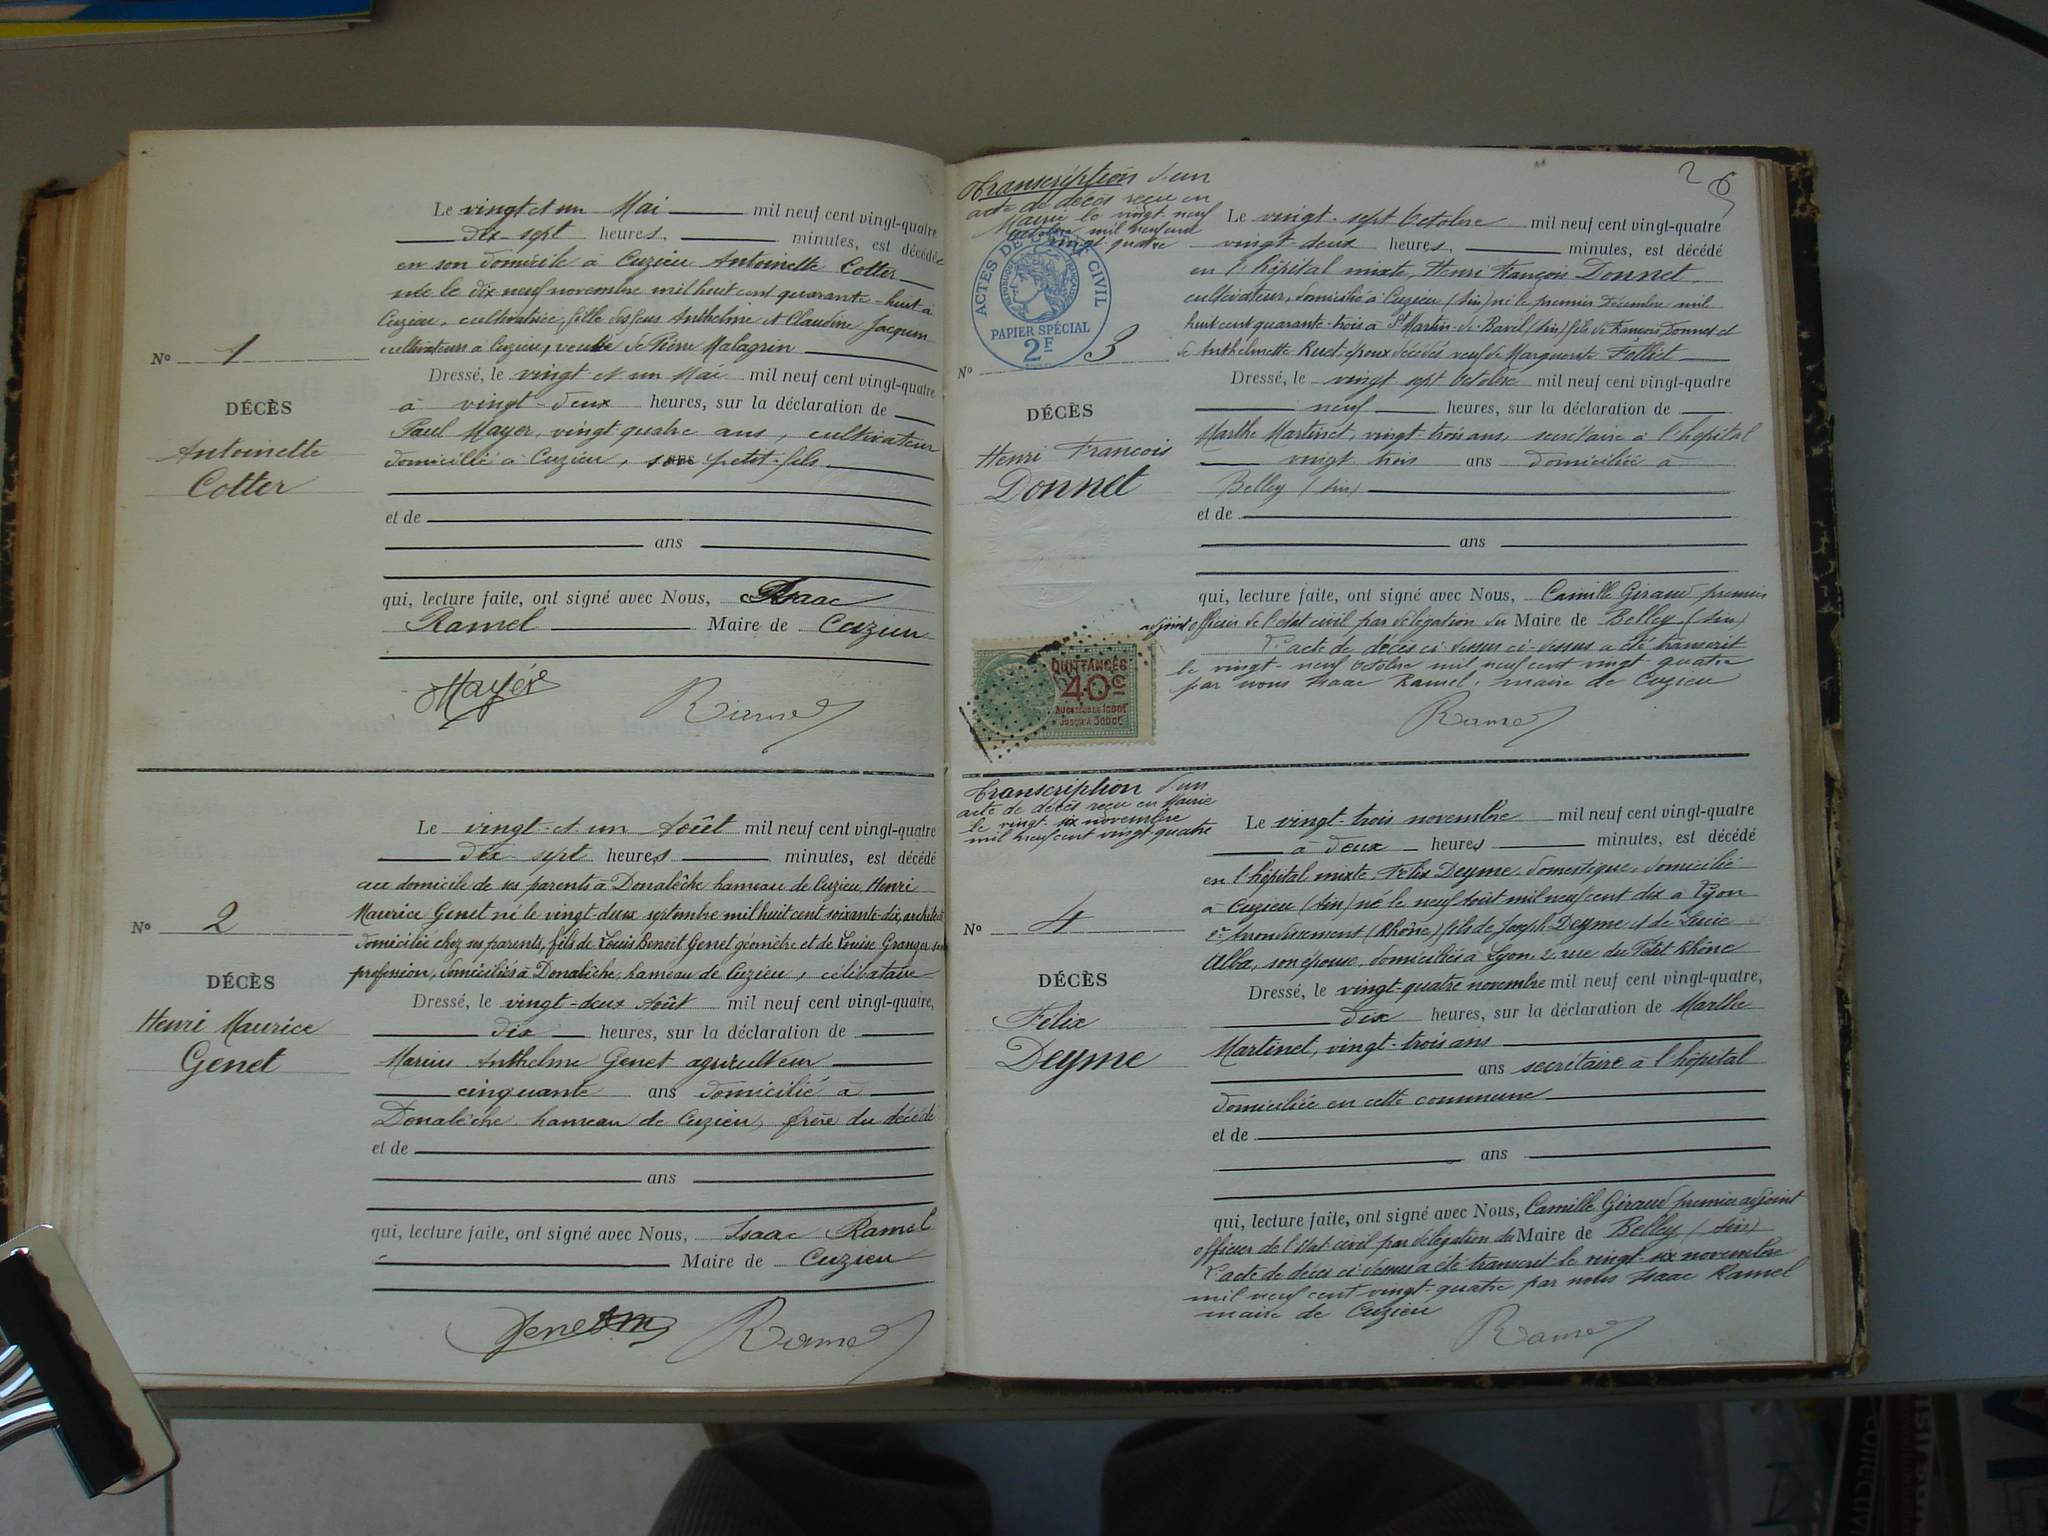 Le vingt et un Mai mil neuf cent vingt-quatre
dix-sept heures, minutes, est décédée
en son domicile à Cuzieu Antoinette Cotter
née le dix-neuf novembre mil huit cent quarante-huit à
Cuzieu, cultivatrice, fille des feus Anthelme et Claudine Jacquin
cultivateurs à Cuzieu, veuve de Pierre Malagrin
Nº 1
DÉCÈS
Antoinette
Cotter
Dressé, le vingt et un Mai mil neuf cent vingt-quatre
à vingt-deux heures, sur la déclaration de
Paul Mayer, vingt-quatre ans, cultivateur
domicilié à Cuzieu, son petit-fils
et de
ans
qui, lecture faite, ont signé avec Nous, Isaac
Ramel Maire de Cuzieu
Mayer
Ramel
Le vingt-et un Août mil neuf cent vingt-quatre
dix-sept heures minutes, est décédé
au domicile de ses parents à Donalèche hameau de Cuzieu, Henri
Maurice Genet né le vingt-deux septembre mil huit cent soixante-dix, architecte
domicilié chez ses parents, fils de Louis Benoit Genet géomètre et de Louise Granger sans
profession, domiciliés à Donalèche, hameau de Cuzieu, célibataire
Nº 2
DÉCÈS
Henri Maurice
Genet
Dressé, le vingt-deux Août mil neuf cent vingt-quatre,
dix heures, sur la déclaration de
Marius Anthelme Genet agriculteur
cinquante ans domicilié à
Donalèche hameau de Cuzieu, frère du décédé
et de
ans
qui, lecture faite, ont signé avec Nous, Isaac Ramel
Maire de Cuzieu
Genet
Ramel
26
Transcription d'un
acte de décès reçu en
Mairie le vingt-neuf
Octobre mil neuf cent
vingt-quatre
ACTES DE L'ÉTAT CIVIL
RÉPUBLIQUE FRANÇAISE
PAPIER SPÉCIAL
2F
Le vingt-sept Octobre mil neuf cent vingt-quatre
vingt-deux heures, minutes, est décédé
en l'hôpital mixte, Henri François Donnet,
cultivateur, domicilié à Cuzieu (Ain) né le premier Décembre mil
huit cent quarante-trois à St Martin-de-Bavel (Ain) fils de François Donnet et
de Anthelmette Ruet, époux décédés veuf de Marguerite Folliet
Nº 3
DÉCÈS
Henri François
Donnet
Dressé, le vingt sept Octobre mil neuf cent vingt-quatre
neuf heures, sur la déclaration de
Marthe Martinet, vingt-trois ans, secrétaire à l'hôpital
vingt trois ans domiciliée à
Belley (Ain)
et de
ans
qui, lecture faite, ont signé avec Nous, Camille Giraud, premier
adjoint officier de l'état civil par délégation du Maire de Belley (Ain)
L'acte de décès ci-dessus ci-dessus a été transcrit
le vingt-neuf Octobre mil neuf cent vingt quatre
par nous Isaac Ramel, maire de Cuzieu
QUITTANCES
40c
AU DESSUS DE 1000F
JUSQU'À 3000F
Ramel
Transcription d'un
acte de décès reçu en Mairie
le vingt-six novembre
mil neuf cent vingt-quatre
Le vingt-trois novembre mil neuf cent vingt-quatre
à deux heures minutes, est décédé
en l'hôpital mixte Félix Deyme, domestique, domicilié
à Cuzieu (Ain) né le neuf Août mil neuf cent dix à Lyon
2e Arrondissement (Rhône) fils de Joseph Deyme et de Lucie
Alba, son épouse, domiciliés à Lyon, 2 rue du Petit Rhône
Nº 4
DÉCÈS
Félix
Deyme
Dressé, le vingt-quatre novembre mil neuf cent vingt-quatre,
dix heures, sur la déclaration de Marthe
Martinet, vingt-trois ans
ans secrétaire à l'hôpital
domiciliée en cette commune
et de
ans
qui, lecture faite, ont signé avec Nous, Camille Giraud premier adjoint
officier de l'état-civil par délégation du Maire de Belley (Ain)
L'acte de décès ci-dessus a été transcrit le vingt-six novembre
mil neuf cent vingt-quatre par nous Isaac Ramel
maire de Cuzieu
Ramel